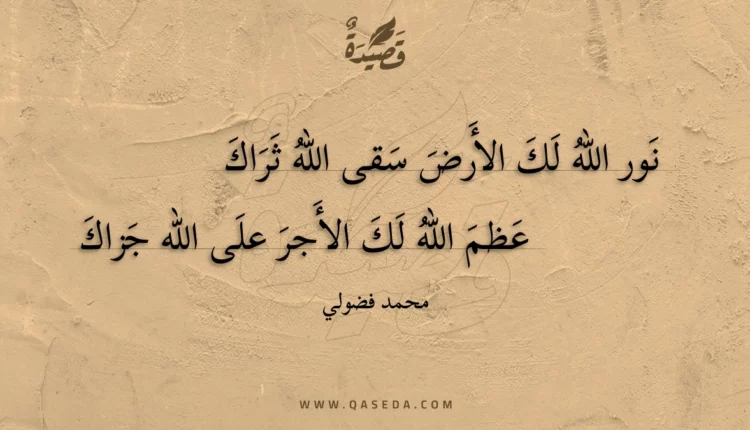 قَصِيدَةٌ
نَور اللهُ لَكَ الأَرضَ سَقى اللهُ ثَرَاكَ
عَظمَ اللهُ لَكَ الأَجرَ علَى الله جَزاكَ
محمد فضولي
WWW.QASEDA.COM